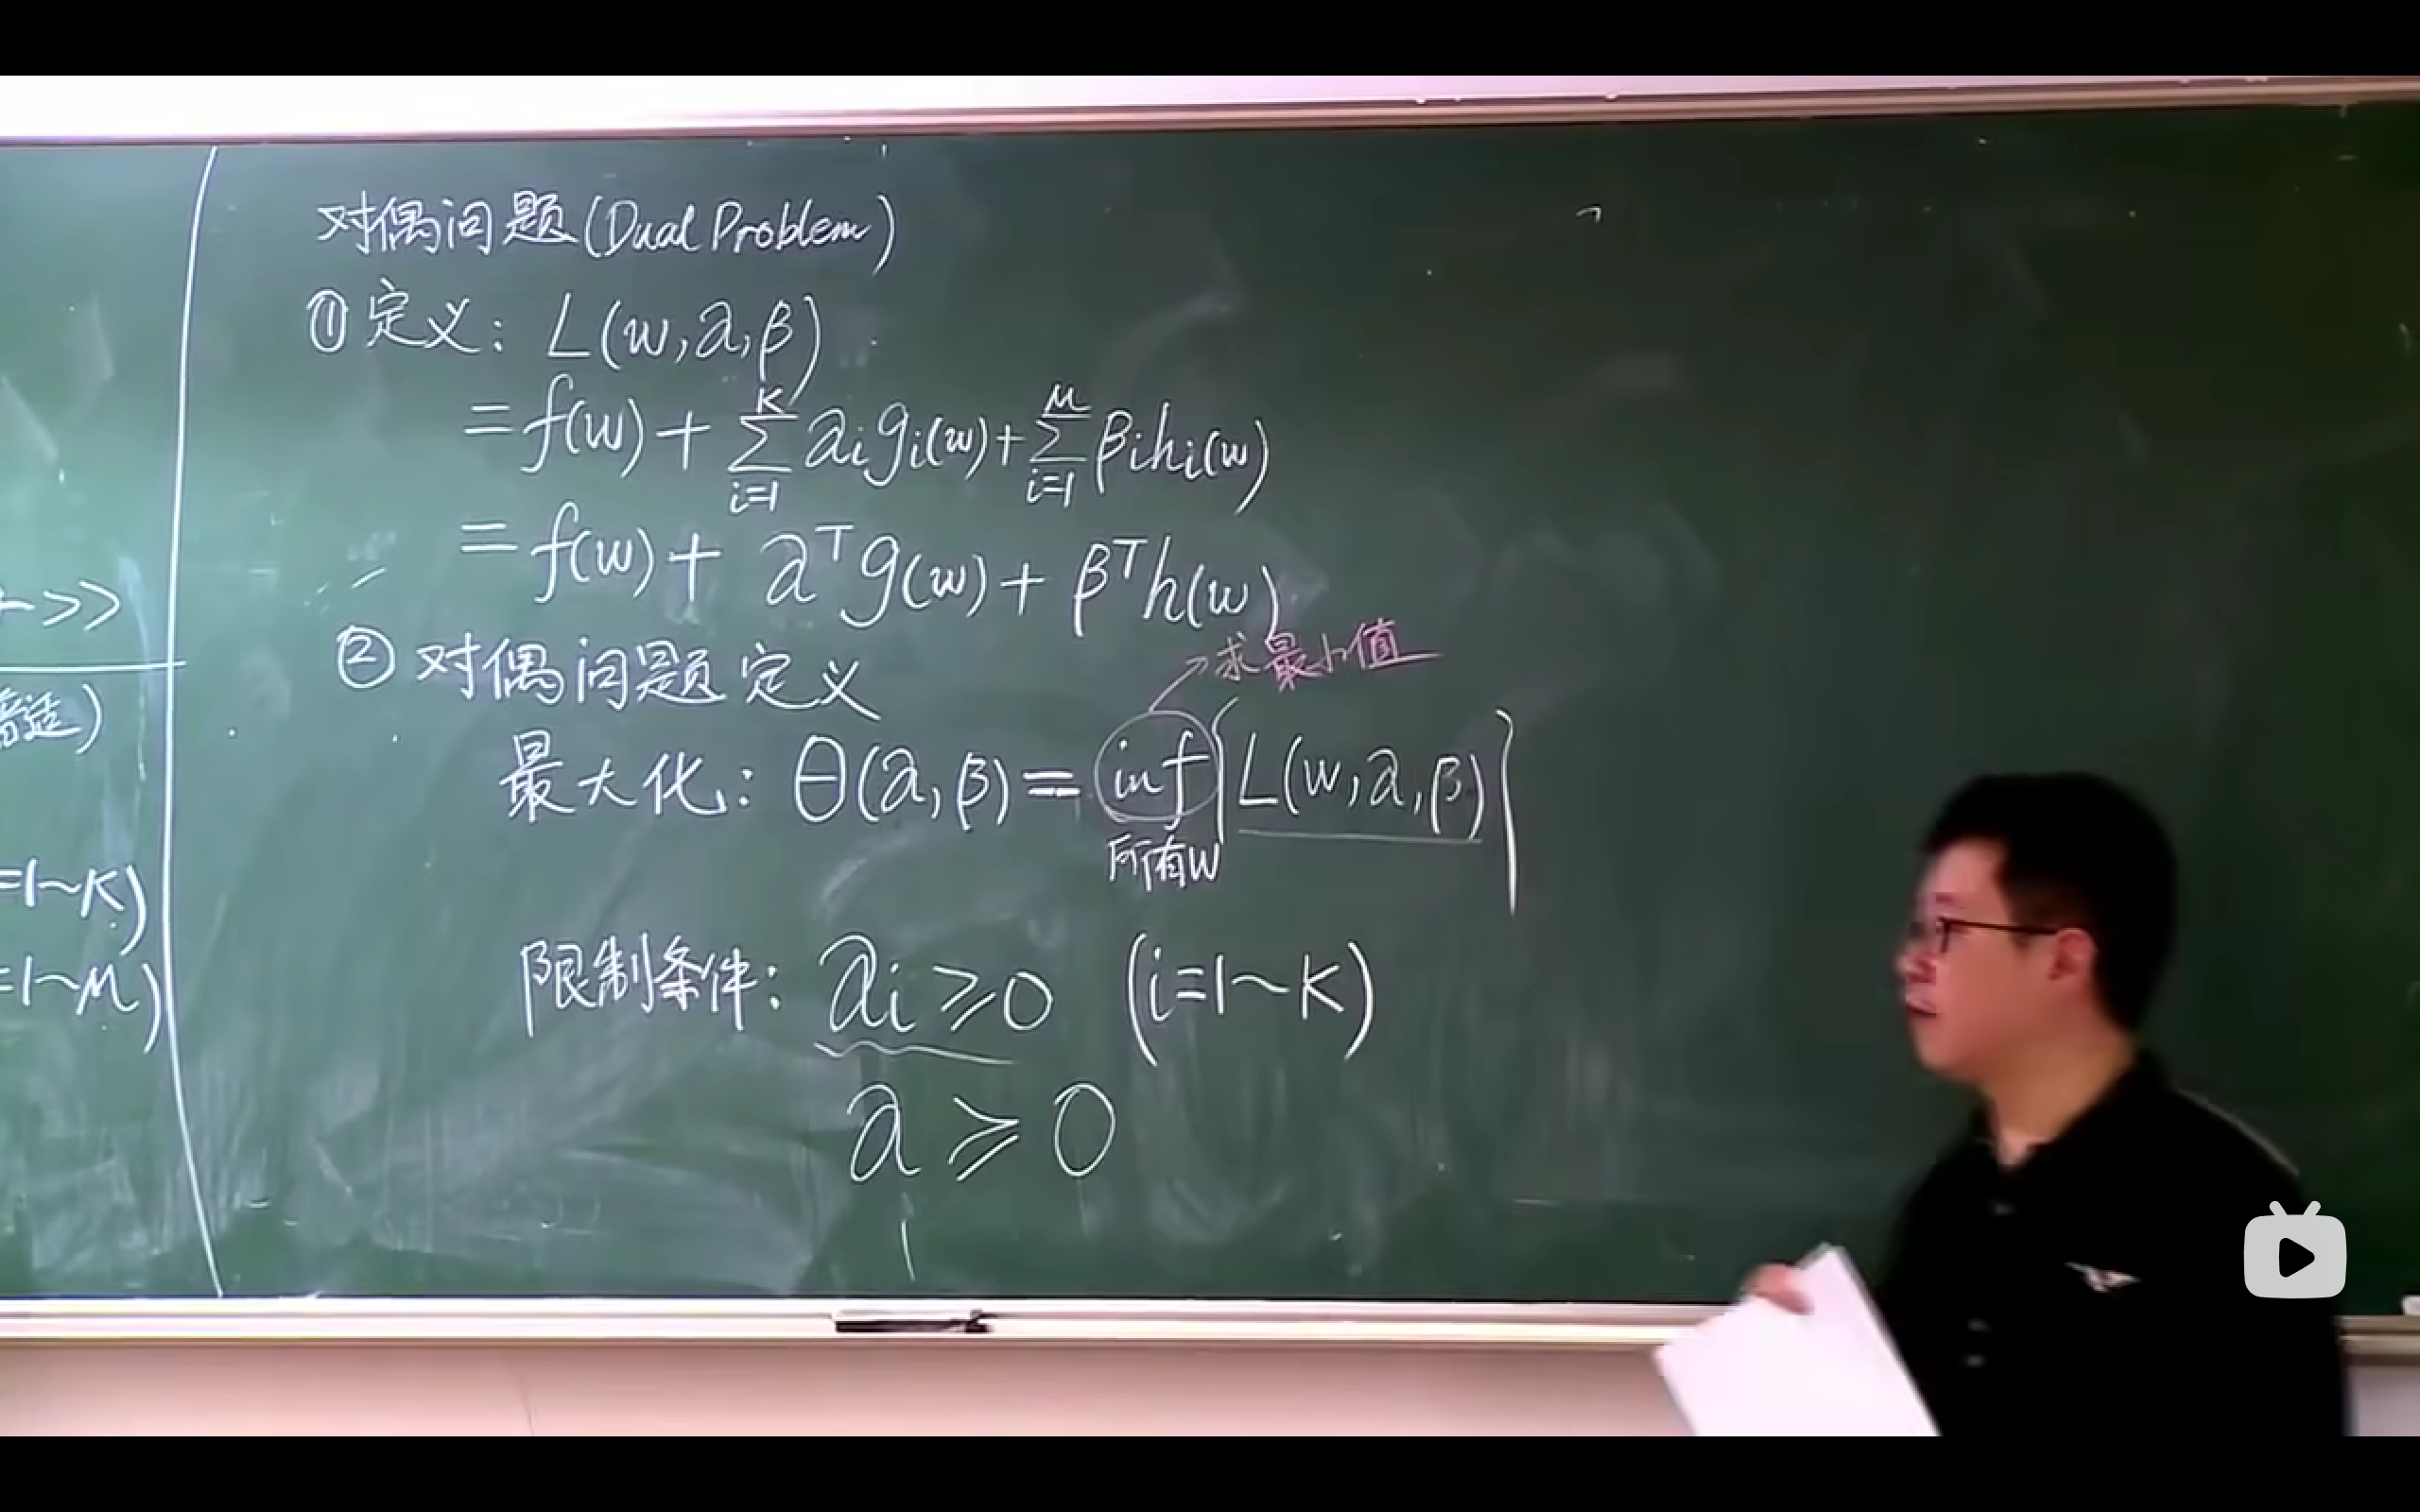 对偶问题(Dual Problem)
① 定义: L(w,α,β)
=f(w)+∑_{i=1}^{K}α_i g_i(w)+∑_{i=1}^{M}β_i h_i(w)
=f(w)+α^T g(w)+β^T h(w)
② 对偶问题定义
→求最小值
最大化: θ(α,β)=inf{L(w,α,β)}
所有w
限制条件: α_i≥0 (i=1~K)
α≥0
>>
=1~K)
=1~M)